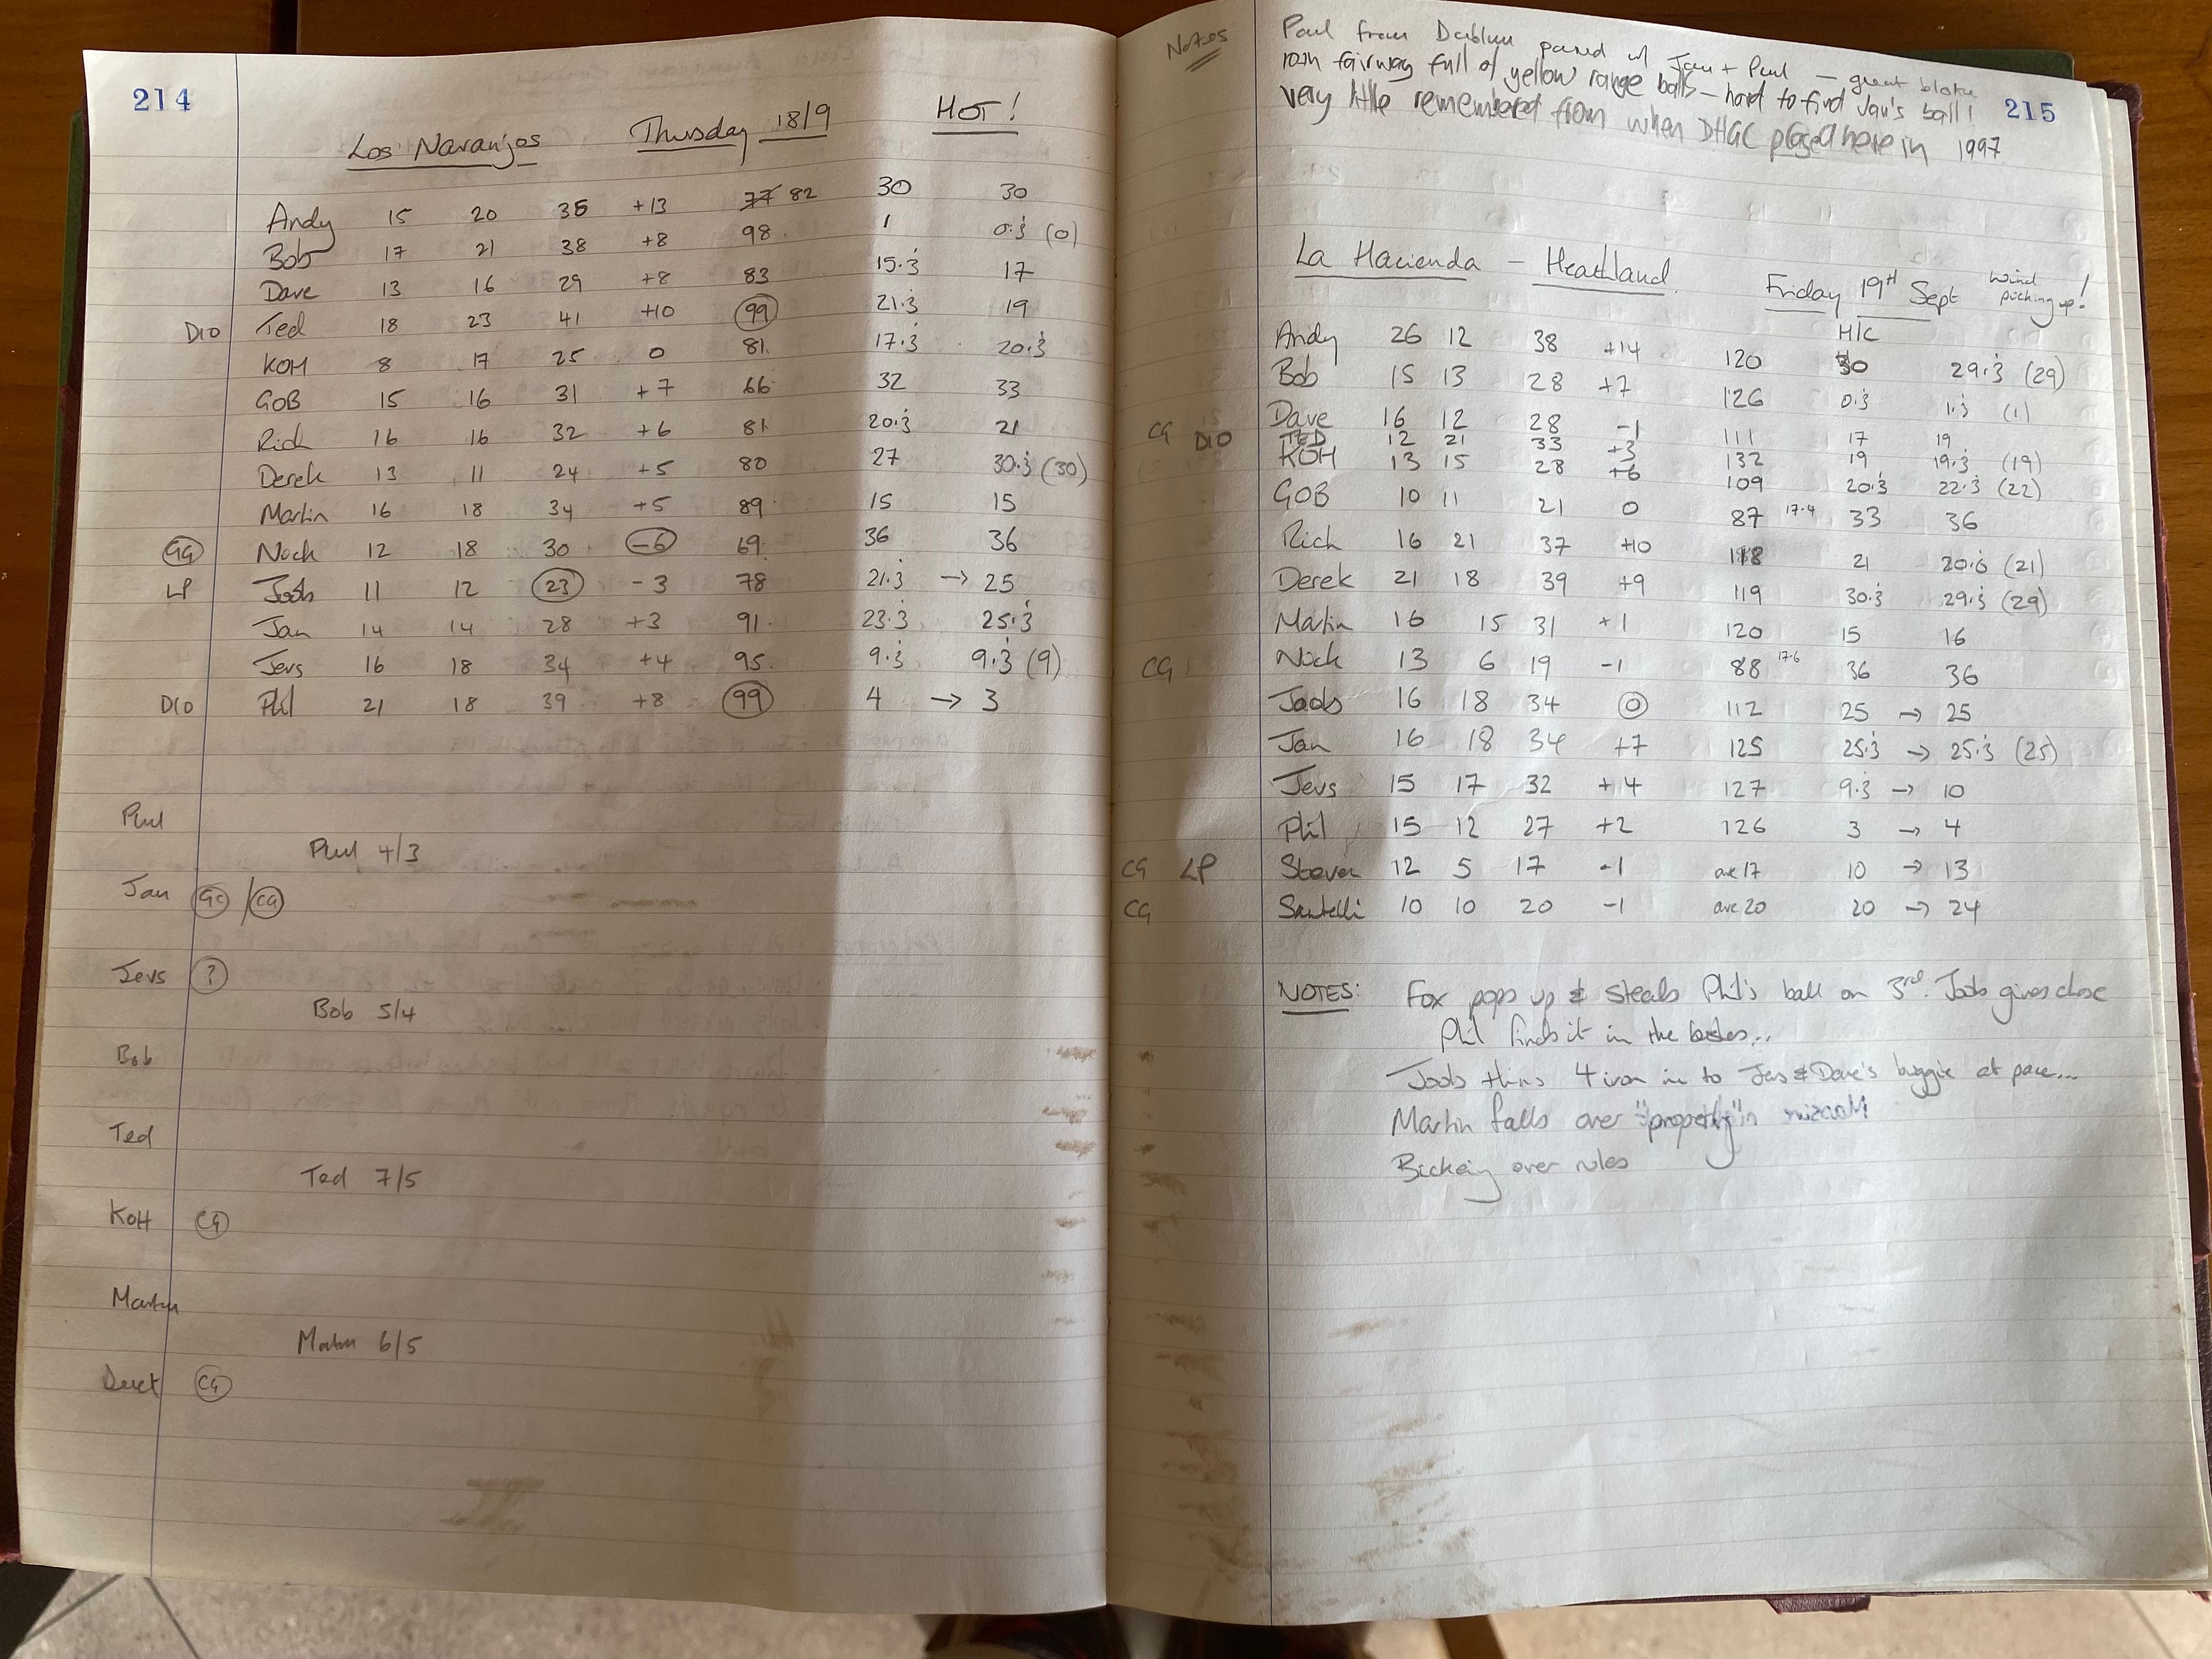 214
Los Naranjos Thursday 18/9 HOT!
Andy 15 20 35 +13 77 82 30 30
Bob 17 21 38 +8 98 1 0.3 (0)
Dave 13 16 29 +8 83 15.3 17
D10 Ted 18 23 41 +10 99 21.3 19
KOH 8 17 25 0 81 17.3 20.3
GOB 15 16 31 +7 66 32 33
Rich 16 16 32 +6 81 20.3 21
Derek 13 11 24 +5 80 27 30.3 (30)
Martin 16 18 34 +5 89 15 15
Nick 12 18 30 -6 69 36 36
LP Joob 11 12 23 -3 78 21.3 → 25
Jan 14 14 28 +3 91 23.3 25.3
Jevs 16 18 34 +4 95 9.3 9.3 (9)
D10 Phil 21 18 39 +8 99 4 → 3
Paul
Paul 4/3
Jan GC / CG
Jevs ?
Bob 5/4
Bob
Ted
Ted 7/5
KOH CG
Martin
Martin 6/5
Derek CG
215
Notes Paul from Dublin paired w/ Jan + Paul – great bloke
10th fairway full of yellow range balls – hard to find Jan's ball!
very little remembered from when DHGC played here in 1997
La Hacienda – Heathland Friday 19th Sept Wind picking up!
H/C
Andy 26 12 38 +14 120 30 29.3 (29)
Bob 15 13 28 +7 126 0.3 1.3 (1)
CG Dave 16 12 28 -1 111 17 19
D10 TED 12 21 33 +3 132 19 19.3 (19)
KOH 13 15 28 +6 109 20.3 22.3 (22)
GOB 10 11 21 0 87 17.4 33 36
Rich 16 21 37 +10 118 21 20.6 (21)
Derek 21 18 39 +9 119 30.3 29.3 (29)
Martin 16 15 31 +1 120 15 16
CG Nick 13 6 19 -1 88 17.6 36 36
Joob 16 18 34 0 112 25 → 25
Jan 16 18 34 +7 125 25.3 → 25.3 (25)
Jevs 15 17 32 +4 127 9.3 → 10
Phil 15 12 27 +2 126 3 → 4
CG LP Steven 12 5 17 -1 ave 17 10 → 13
CG Santelli 10 10 20 -1 ave 20 20 → 24
NOTES: Fox pops up & steals Phil's ball on 3rd. Joob gives chase
Phil finds it in the bushes...
Joob thins 4 iron in to Jevs & Dave's buggie at pace...
Martin falls over "properly" in
Bickering over rules